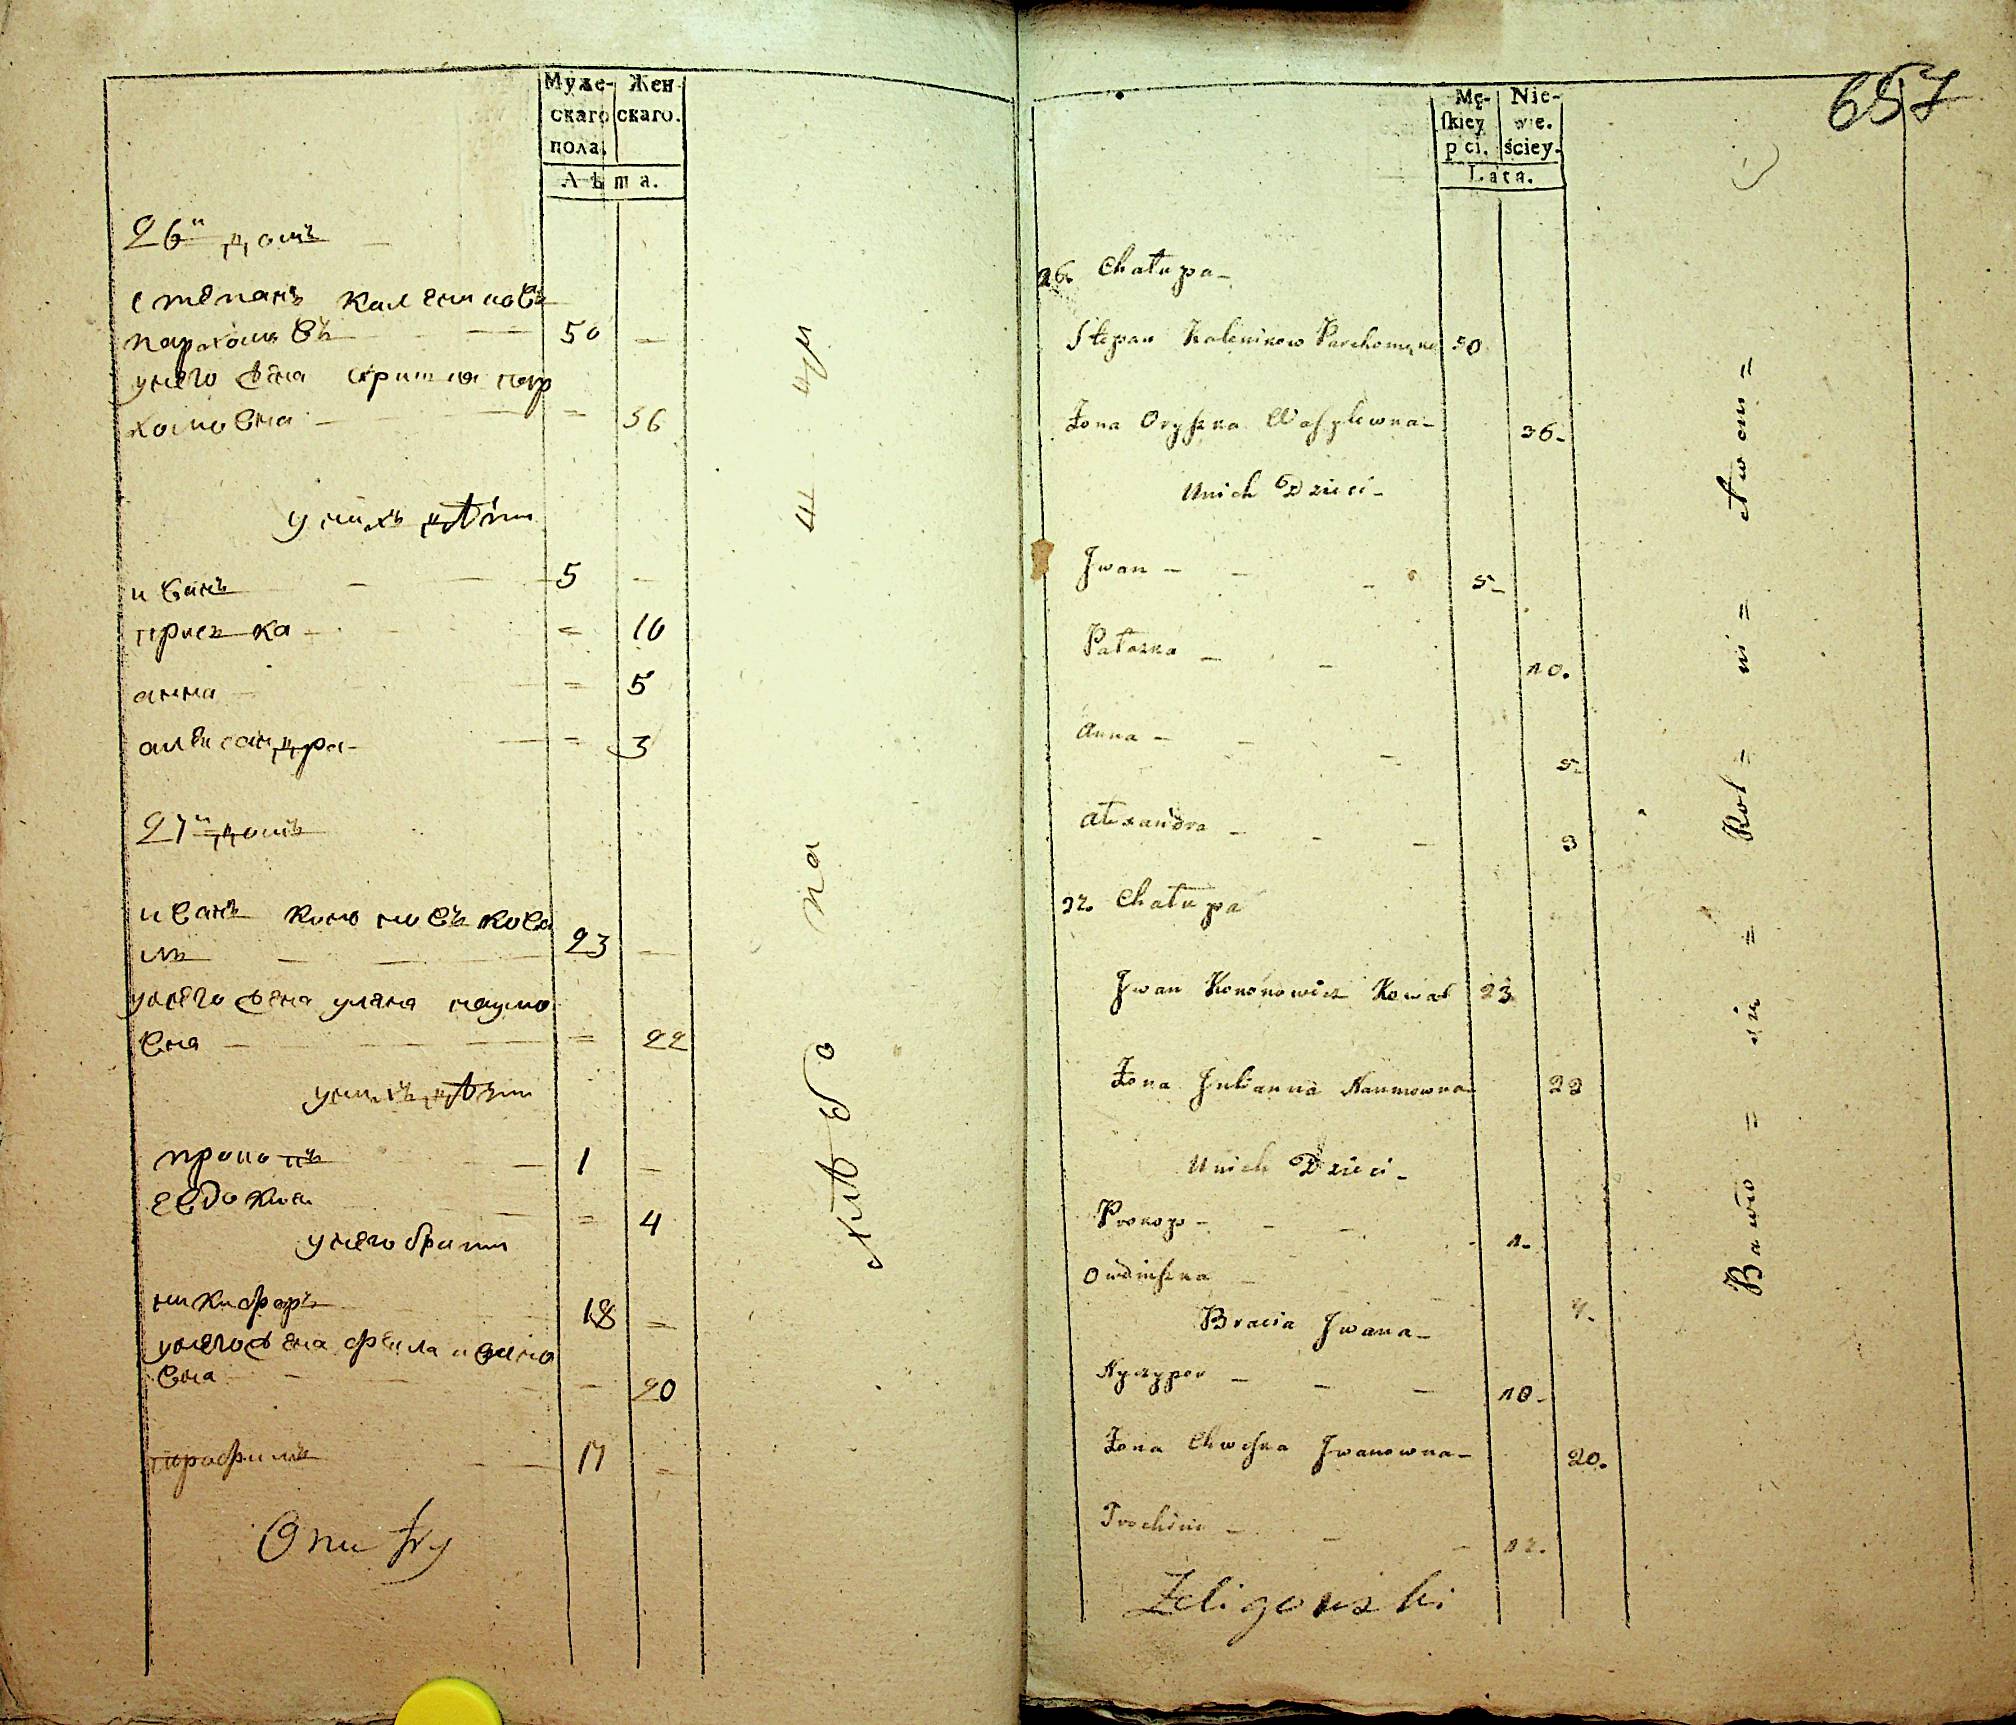 Муже-
скаго
пола.
Жен-
скаго.
Лѣта.
26й домъ
степанъ калениковъ
пархомовъ 50 —
унего жена
хомовна = 36
унихъ дѣти
иванъ 5 —
приська = 10
анна = 5
александра = 3
27й домъ
иванъ кононовъ кова
ль 23 —
унего жена уляна наумо
вна = 22
унихъ дѣти
прокопъ 1 —
евдокия = 4
унего брати
никифоръ 18 =
унего жена ивано
вна — 20
трофимъ 17 =
хлѣбо
па
Mę-
skiey
płci.
Nie-
wie-
ściey.
Lata.
657
26. Chałupa
Stepan Kalenikow Parchomenko 50
Żona Oryszka Wasylewna 36
Unich Dzieci
Jwan 5
Paraszka 10.
Anna 5
Alexandra 3
27. Chałupa
Jwan Kononowicz Kowal 23
Żona Julianna Naumowna 22
Unich Dzieci
Prokop 1
Owdiuszka 4
Bracia Jwana
Nyczypor 18
Żona Jwanowna 20.
Trochim 17.
Żeligowski